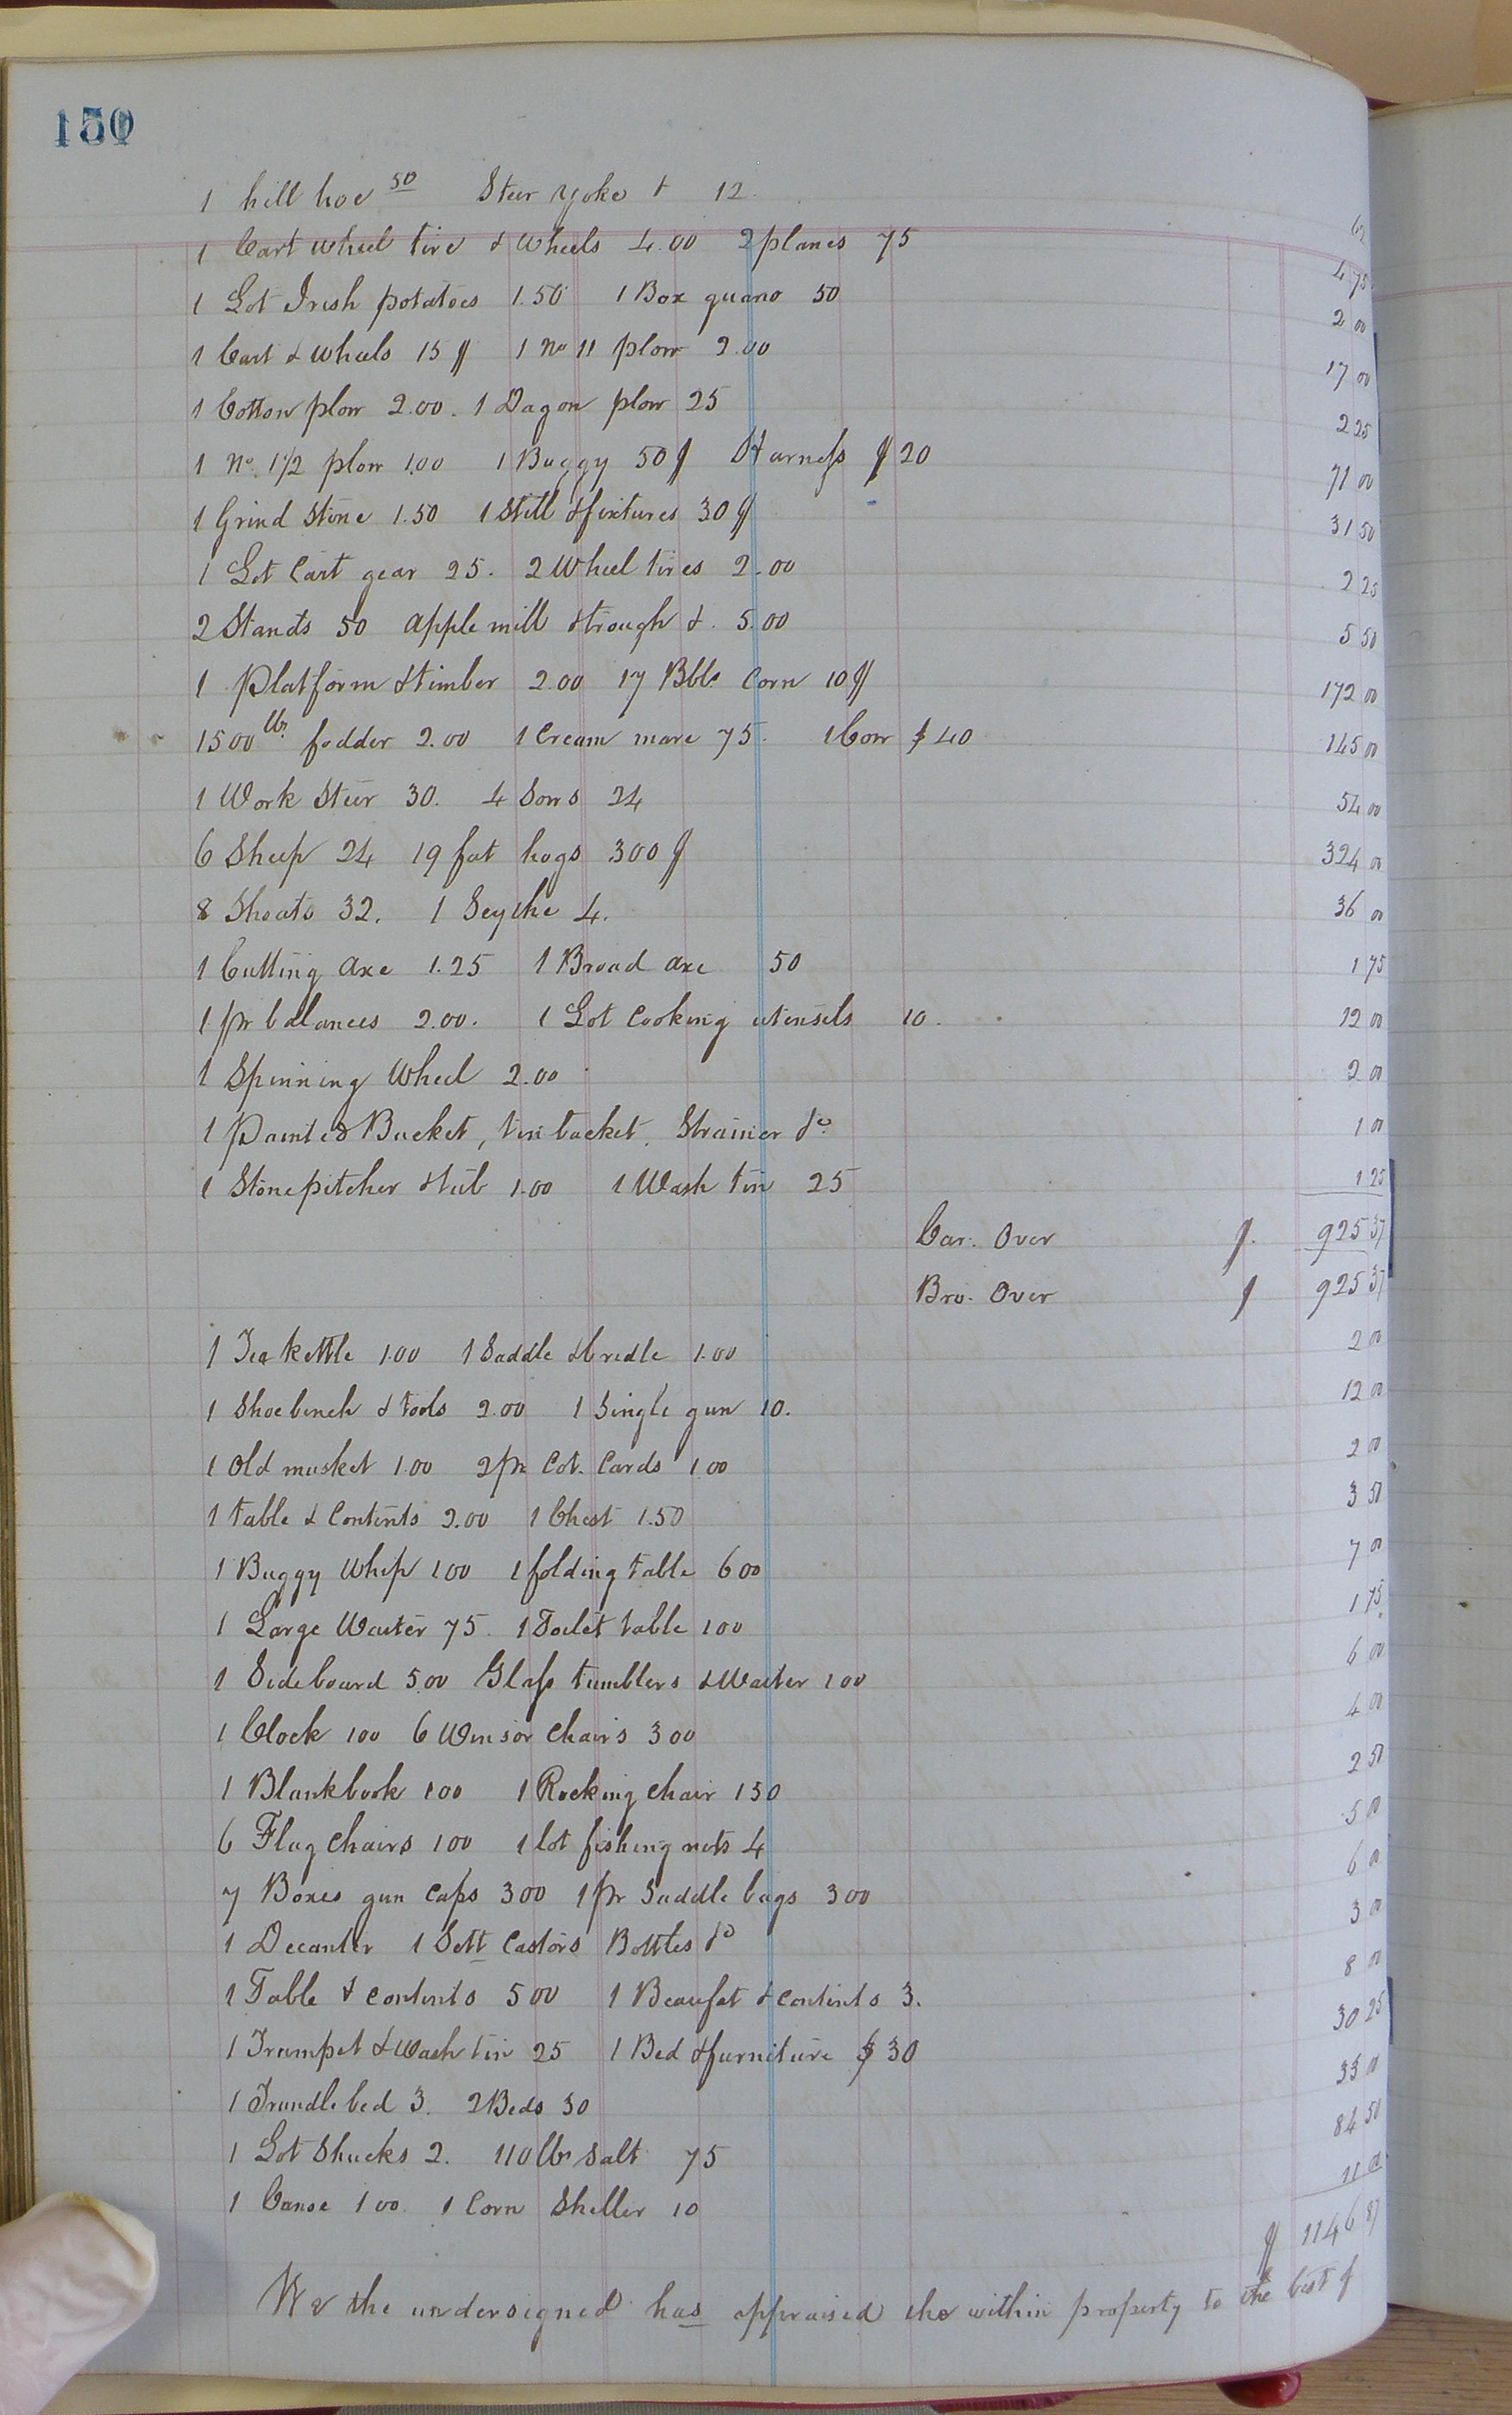 150
1 hill hoe 50 Steer yoke & 12 62
1 Cart wheel tire & Wheels 4.00 2 planes 75 4 75
1 Lot Irish potatoes 1.50 1 Box guano 50 2 00
1 Cart & Wheels 15 $ 1 No 11 plow 2.00 17 00
1 Cotton plow 2.00. 1 Dagon plow 25 2 25
1 No. 1 1/2 plow 1.00 1 Buggy 50 $ Harness $ 20 71 00
1 Grind Stone 1.50 1 Still & fixtures 30 $ 31 50
1 Lot Cart gear 25. 2 Wheel tires 2.00 2 25
2 Stands 50 apple mill & trough &. 5.00 5 50
1 Platform & timber 2.00 17 Bbls Corn 10 $ 172 00
1500 lbs. fodder 2.00 1 Cream mare 75. 1 Cow $ 40 145 00
1 Work Steer 30. 4 Sows 24 54 00
6 Sheep 24 19 fat hogs 300 $ 324 00
8 Shoats 32. 1 Scythe 4. 36 00
1 Cutting axe 1.25 1 Broad axe 50 1 75
1 pr balances 2.00. 1 Lot Cooking utensils 10. 12 00
1 Spinning Wheel 2.00 2 00
1 Painted Bucket, tin bucket, Strainer 1 00
1 Stone pitcher & tub 1.00 1 Wash tin 25 1 25
Car. Over $. 925 37
Bro. Over $ 925 37
1 Tea kettle 1.00 1 Saddle & bridle 1.00 2 00
1 Shoe bench & tools 2.00 1 Single gun 10. 12 00
1 Old musket 1.00 2 pr Cot. Cards 1.00 2 00
1 table & Contents 2.00 1 Chest 1.50 3 50
1 Buggy Whip 1 00 1 folding table 6 00 7 00
1 Large Waiter 75. 1 Toilet table 1 00 1 75
1 Sideboard 5.00 Glass tumblers & Waiter 1 00 6 00
1 Clock 1 00 6 Winsor Chairs 3 00 4 00
1 Blank book 1 00 1 Rocking Chair 1 50 2 50
6 Flag Chairs 1 00 1 lot fishing nets 4 5 00
7 Boxes gun Caps 3 00 1 pr Saddle bags 3 00 6 00
1 Decanter 1 Sett Castors Bottles 3 00
1 Table & Contents 5 00 1 Beaufat & Contents 3. 8 00
1 Trumpet & Wash tin 25 1 Bed & furniture $ 30 30 25
1 Trundle bed 3. 2 Beds 30 33 00
1 Lot Shucks 2. 110 lbs Salt 75 84 50
1 Canoe 1 00. 1 Corn Sheller 10 11 00
$ 1146 87
We the undersigned has appraised the within property to the best of